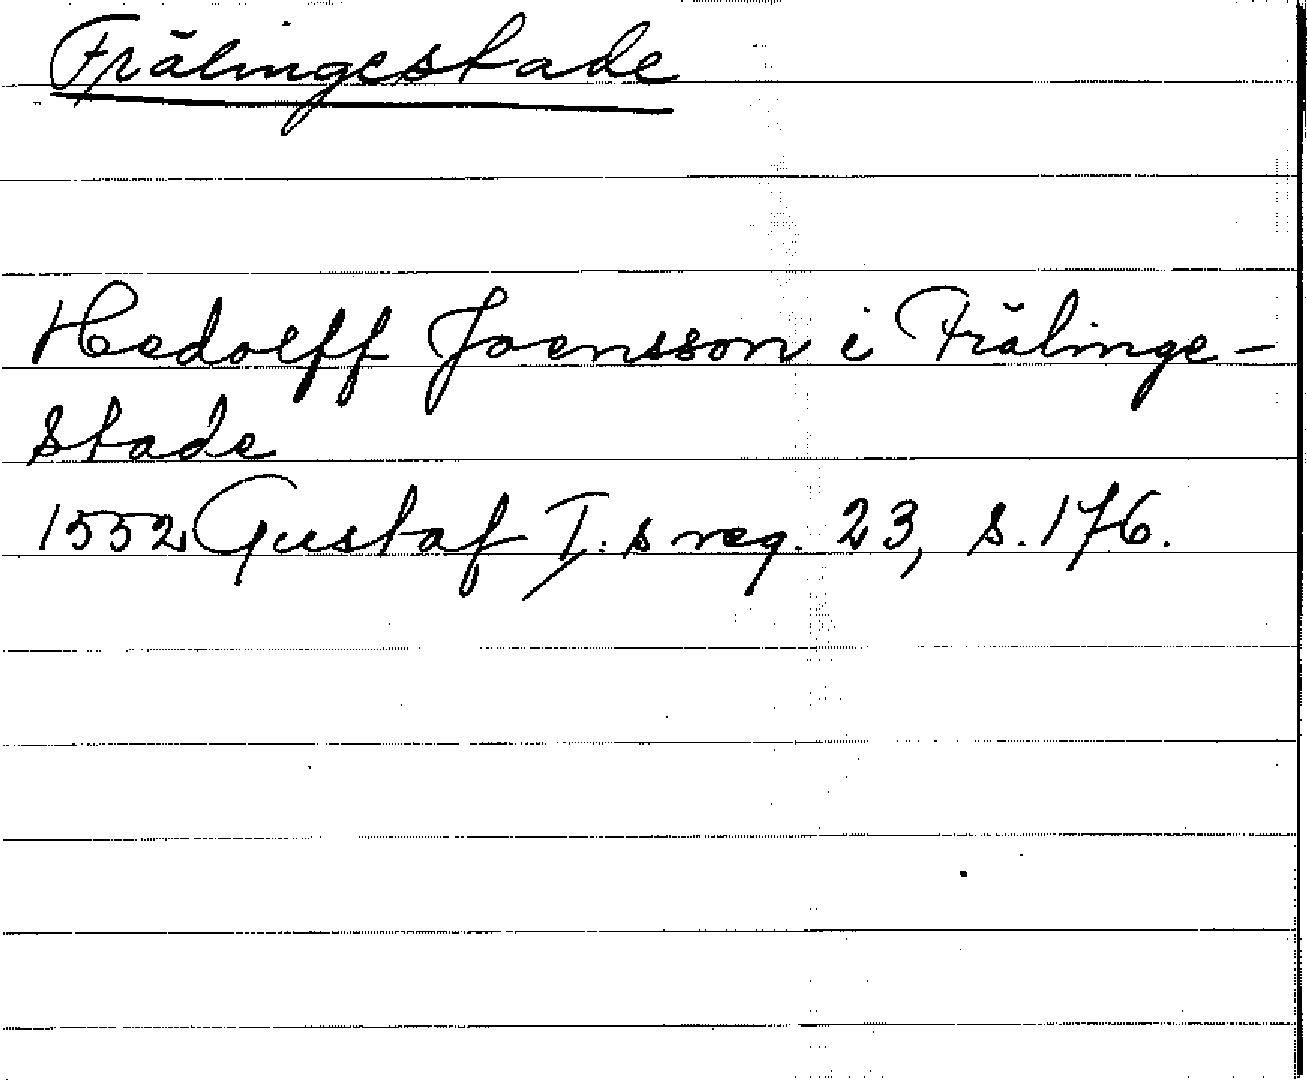 Frälingestade
Hedolff Joensson i Frälinge-
stade
1552 Gustaf I:s reg. 23, s. 176.